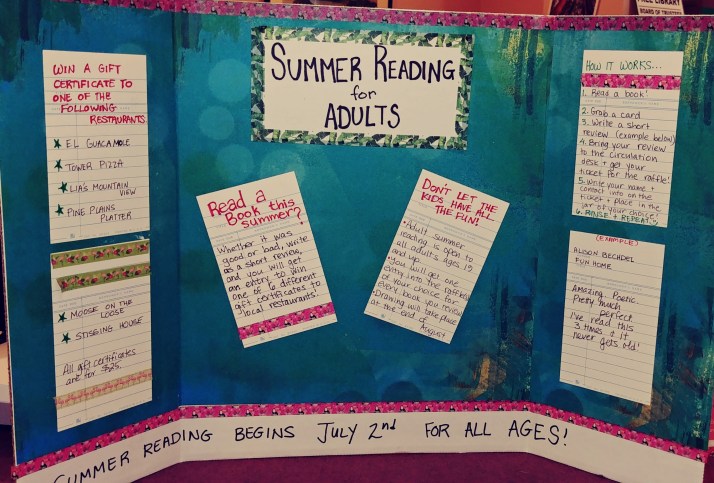 FREE LIBRARY
BOARD OF TRUSTEES
WIN A GIFT
CERTIFICATE TO
ONE OF THE
FOLLOWING
RESTAURANTS:
EL GUACAMOLE
TOWER PIZZA
LIA'S MOUNTAIN
VIEW
PINE PLAINS
PLATTER
MOOSE ON THE
LOOSE
STISSING HOUSE
All gift certificates
are for $25.
SUMMER READING
for
ADULTS
Read a
Book this
summer?
Whether it was
good or bad, write
us a short review,
and you will get
an entry to win
one of 6 different
gift certificates to
local restaurants.
DON'T LET THE
KIDS HAVE ALL
THE FUN!
• Adult summer
reading is open to
all adults ages 19
and up
• You will get one
entry into the raffle
of your choice for
every book you review
• Drawing will take place
at the end of
August
HOW IT WORKS...
1. Read a book!
2. Grab a card
3. Write a short
review (example below)
4. Bring your review
to the circulation
desk + get your
ticket for the raffle!
5. Write your name +
contact info on the
ticket + place in the
jar of your choice!
6. RINSE! + REPEAT!
(EXAMPLE)
ALISON BECHDEL
FUN HOME
Amazing. Poetic.
Pretty much
perfect.
I've read this
3 times + it
never gets old!
SUMMER READING BEGINS JULY 2nd FOR ALL AGES!